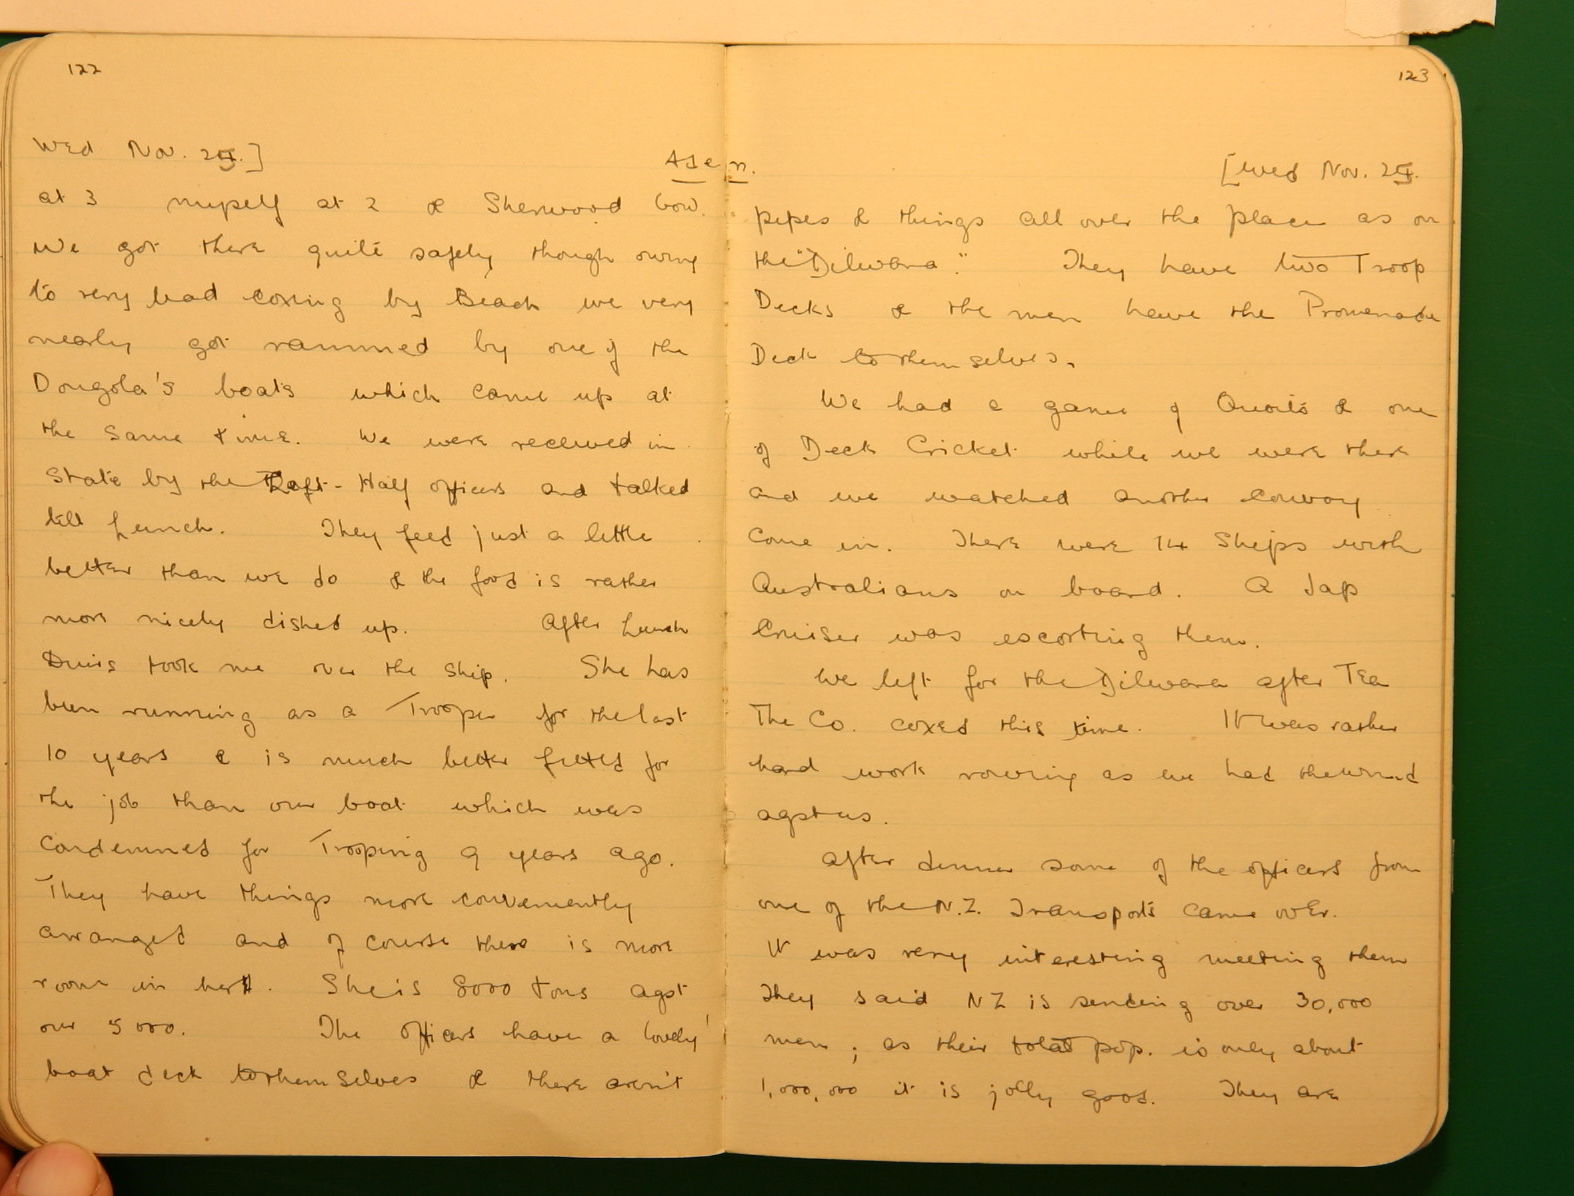 122
Wed Nov. 25.]
at 3 myself at 2 & Sherwood bow.
We got there quite safely though owing
to very bad coxing by Beach we very
nearly got rammed by one of the
Dongola's boats which came up at
the same time. We were received in
State by the Left-Half officers and talked
till lunch. They feed just a little
better than we do & the food is rather
more nicely dished up. After lunch
took me over the ship. She has
been running as a Trooper for the last
10 years & is much better fitted for
the job than our boat which was
condemned for Trooping 9 years ago.
They have things more conveniently
arranged and of course there is more
room in her. She is 8000 tons agst
our 5000. The officers have a lovely
boat deck to themselves & there aren't
Aden.
123
[Wed Nov. 25.
pipes & things all over the place as on
the "Dilwara". They have two Troop
Decks & the men have the Promenade
Deck to themselves.
We had a game of Quoits & one
of Deck Cricket while we were there
and we watched another convoy
come in. There were 14 Ships with
Australians on board. A Jap
Cruiser was escorting them.
We left for the Dilwara after Tea
The Co. coxed this time. It was rather
hard work rowing as we had the wind
agst us.
After dinner some of the officers from
one of the N.Z. Transports came over.
It was very interesting meeting them
They said NZ is sending over 30,000
men; as their total pop. is only about
1,000,000 it is jolly good. They are